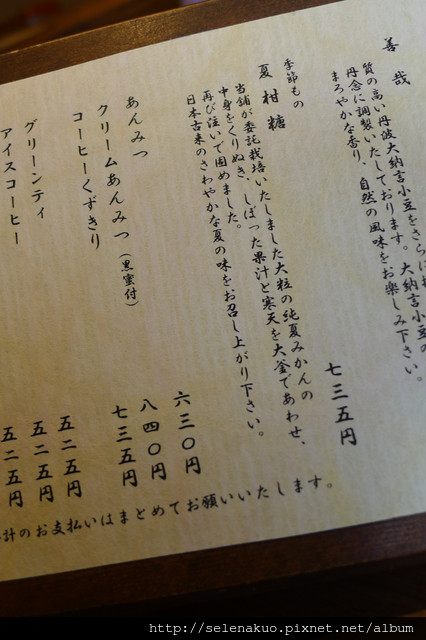 善哉
質の高い丹波大納言小豆をさらに
丹念に調製いたしております。大納言小豆の
まろやかな香り、自然の風味をお楽しみ下さい。
七三五円
季節もの
夏柑糖
当舗が委託栽培いたしました大粒の純夏みかんの
中身をくりぬき、しぼった果汁と寒天を大釜であわせ、
再び注いで固めました。
日本古来のさわやかな夏の味をお召し上がり下さい。
あんみつ 六三〇円
クリームあんみつ(黒蜜付) 八四〇円
コーヒーくずきり 七三五円
グリーンティ 五二五円
アイスコーヒー 五二五円
五二五円
計のお支払いはまとめてお願いいたします。
http://selenakuo.pixnet.net/album